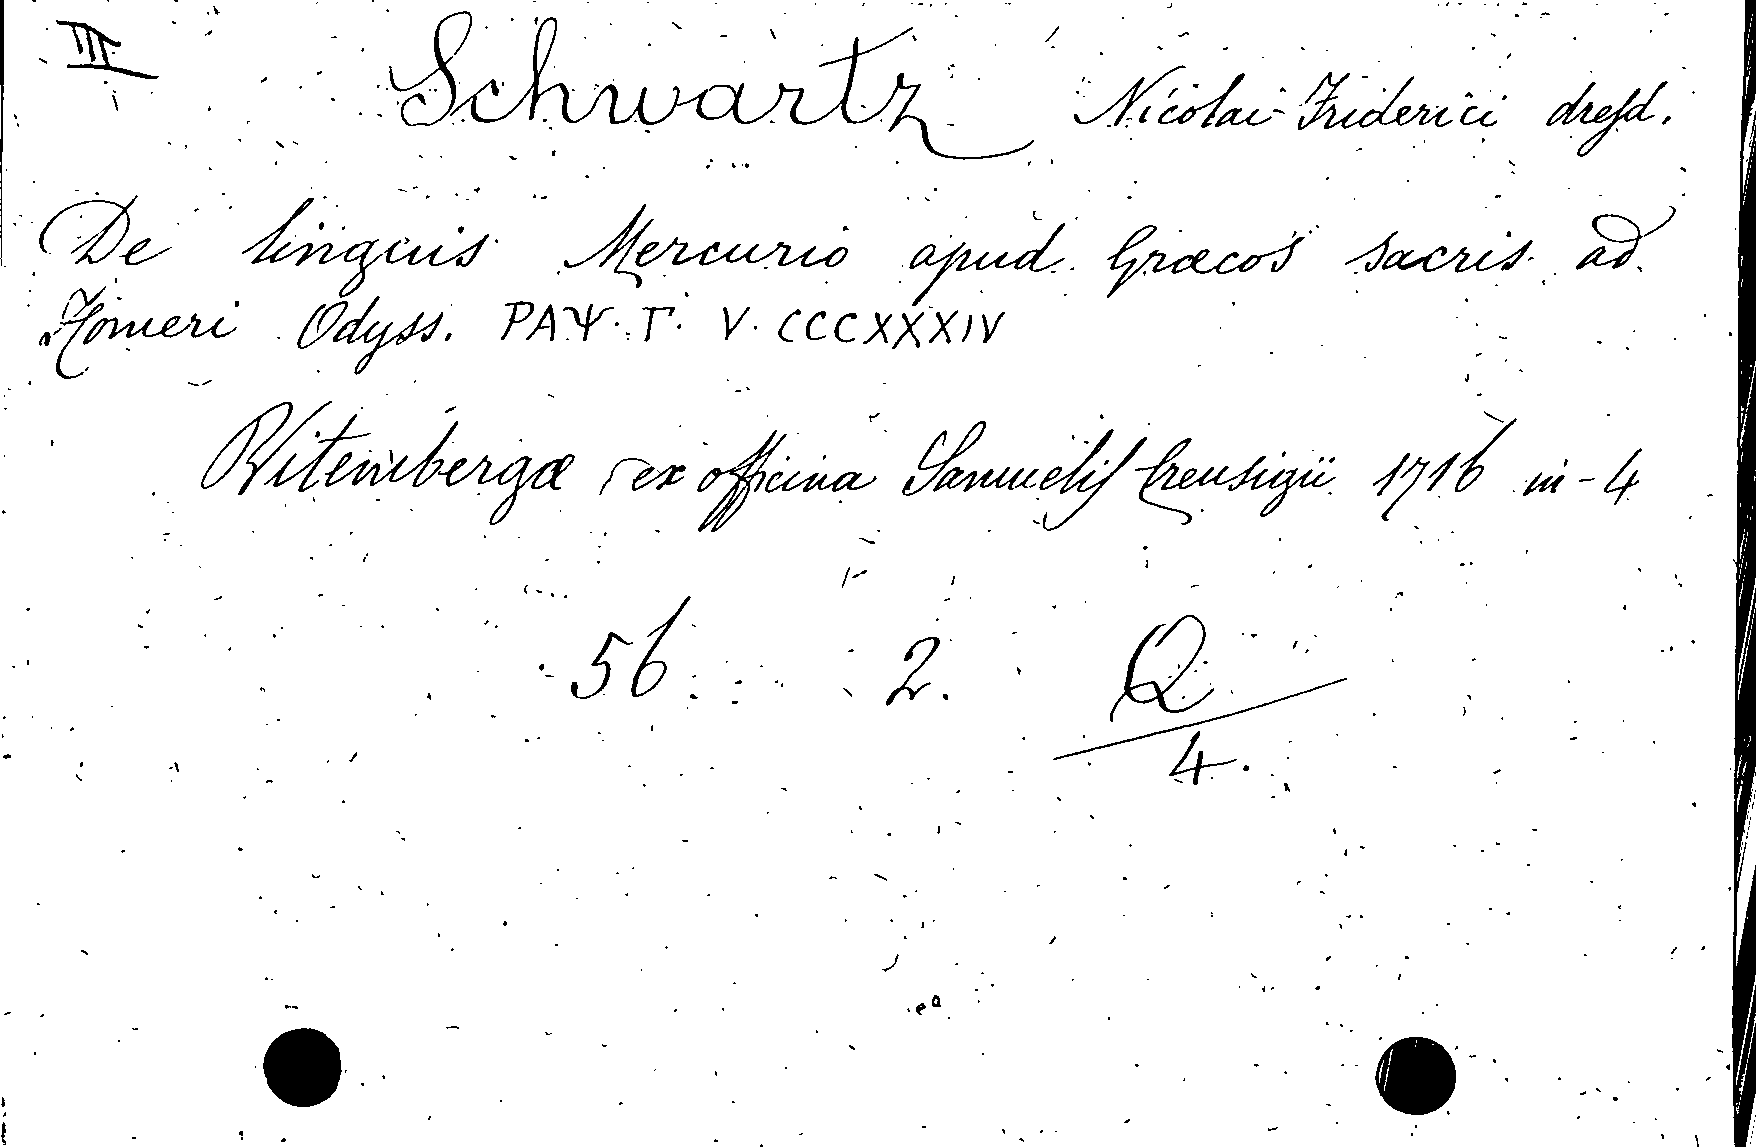 III
Schwartz Nicolai-Friderici dresd.
De linguis Mercurio apud Græcos sacris ad
Homeri Odyss. ΡΑΨ. Γ. V. CCCXXXIV
Witembergæ ex officina Samuelis Creusigii 1716 in-4
56 2. Q
4.